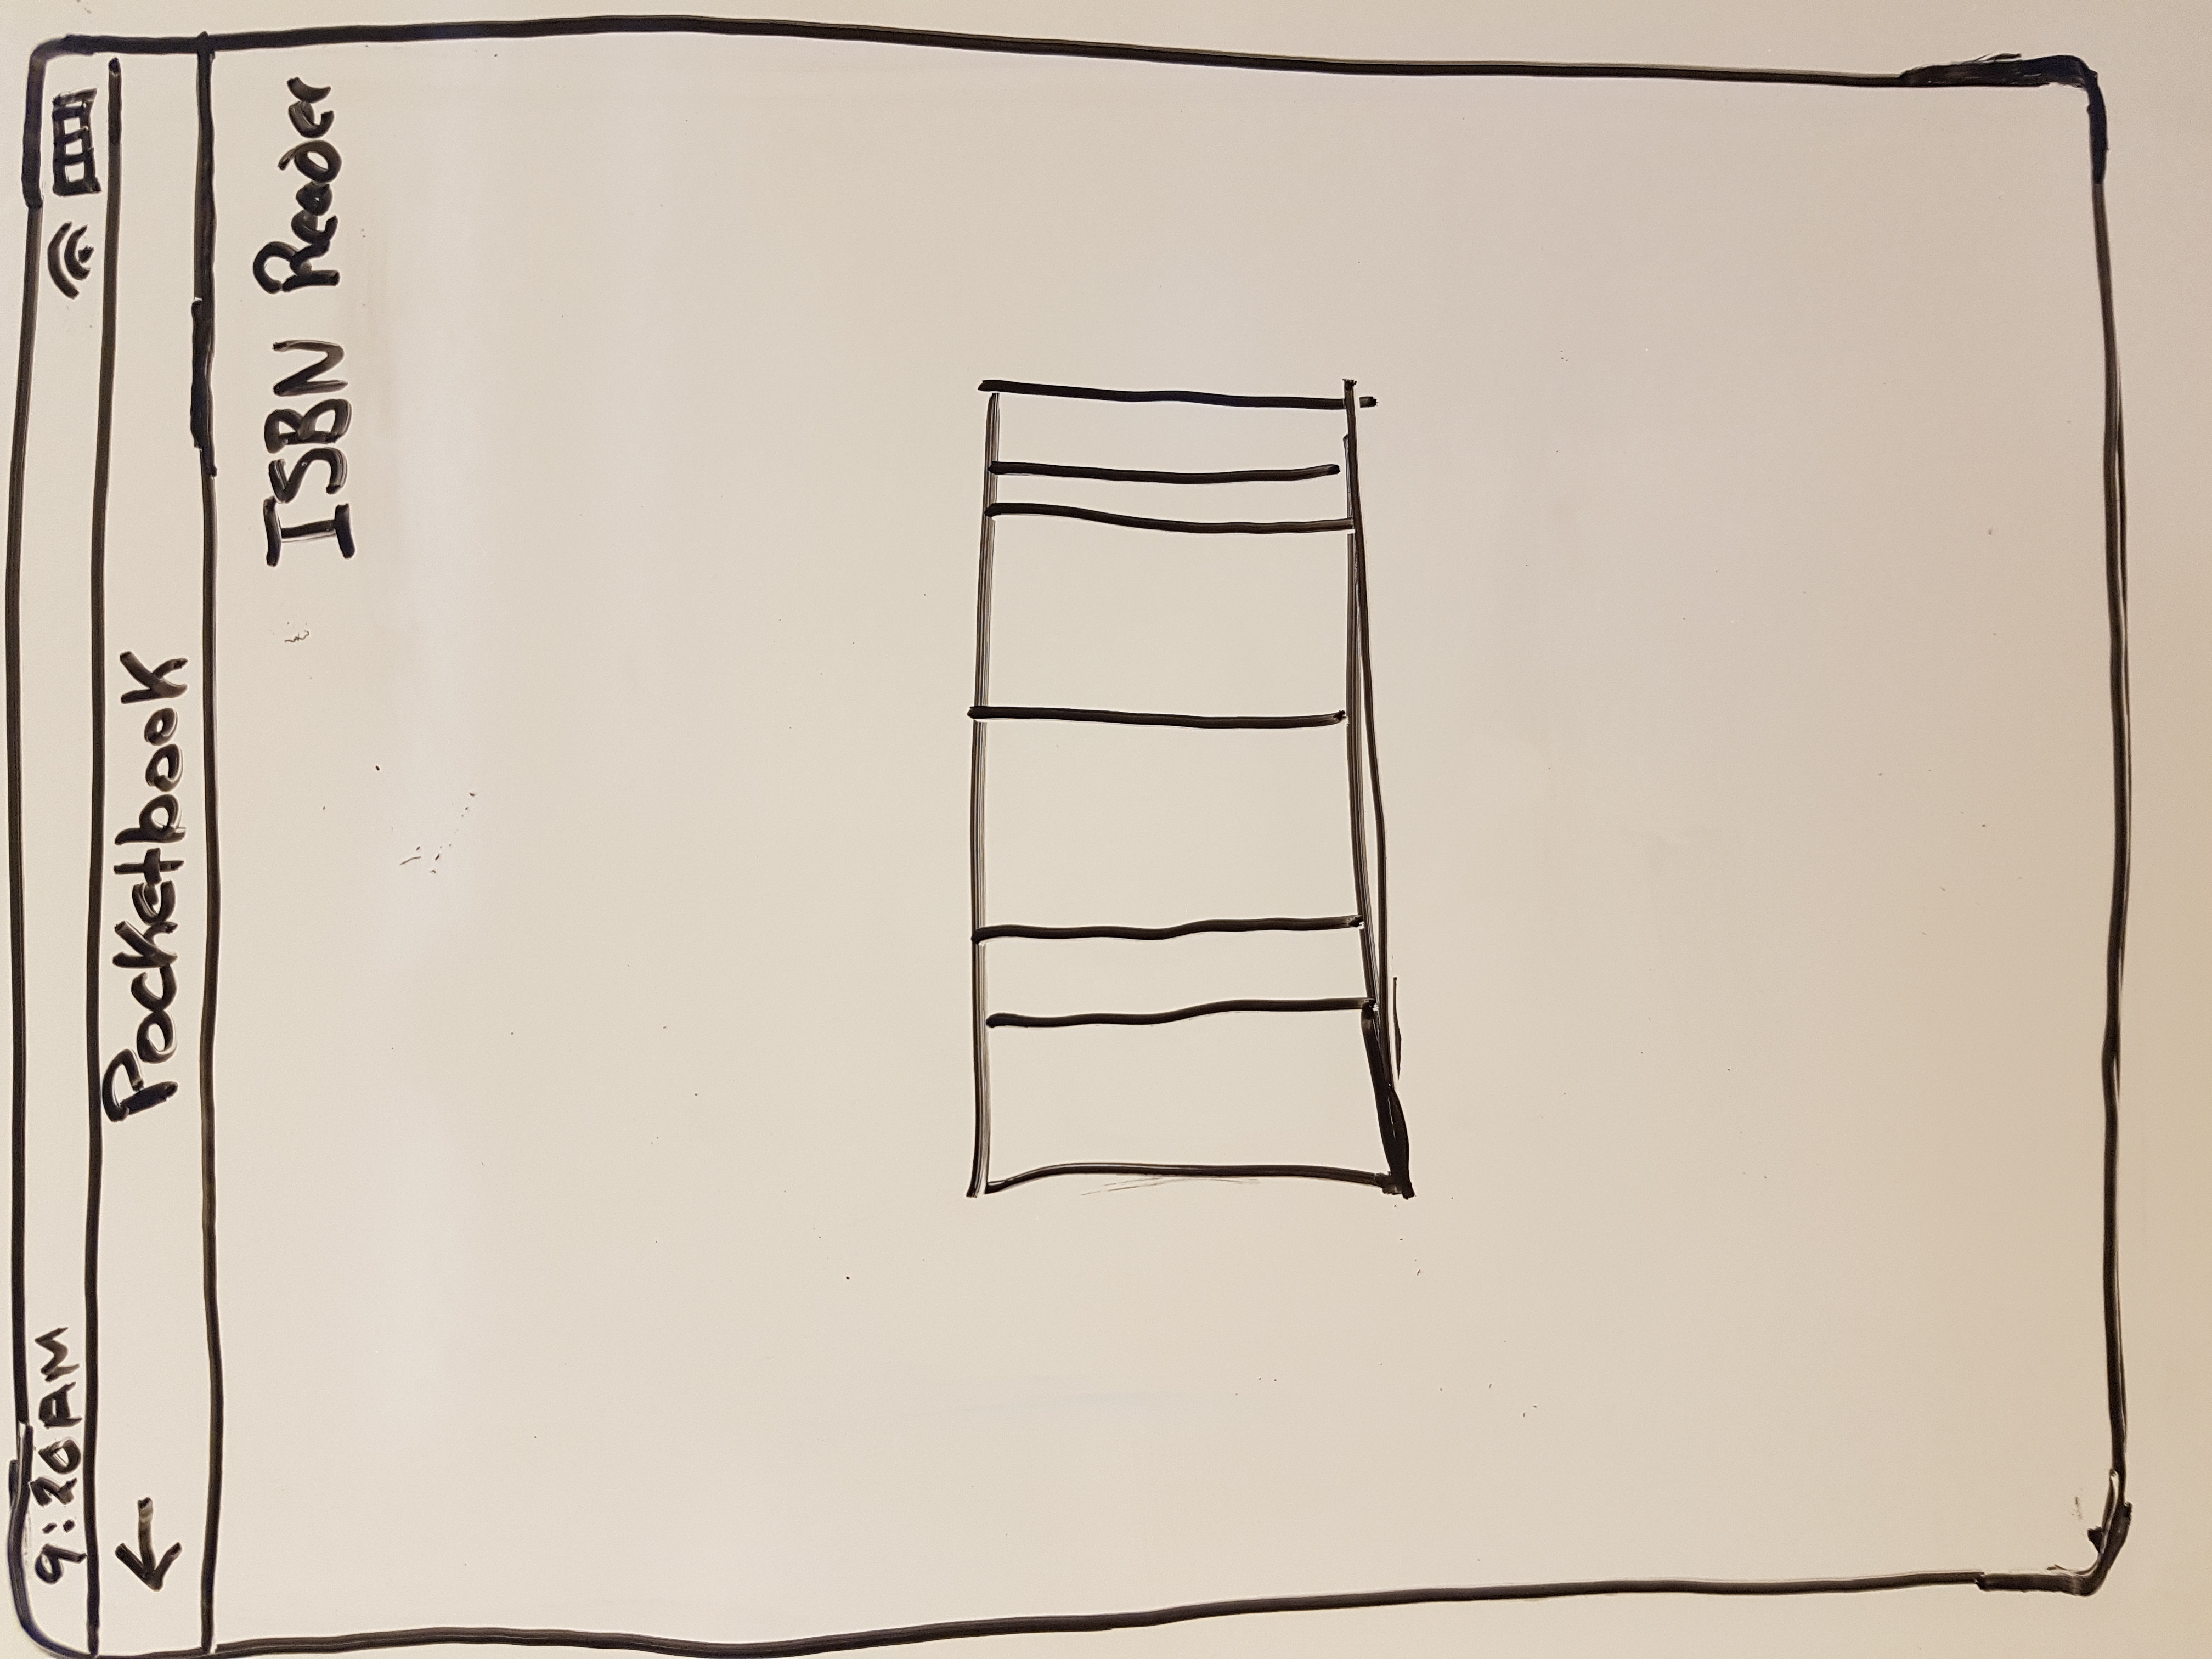 9:20AM
Pocketbook
ISBN Reader